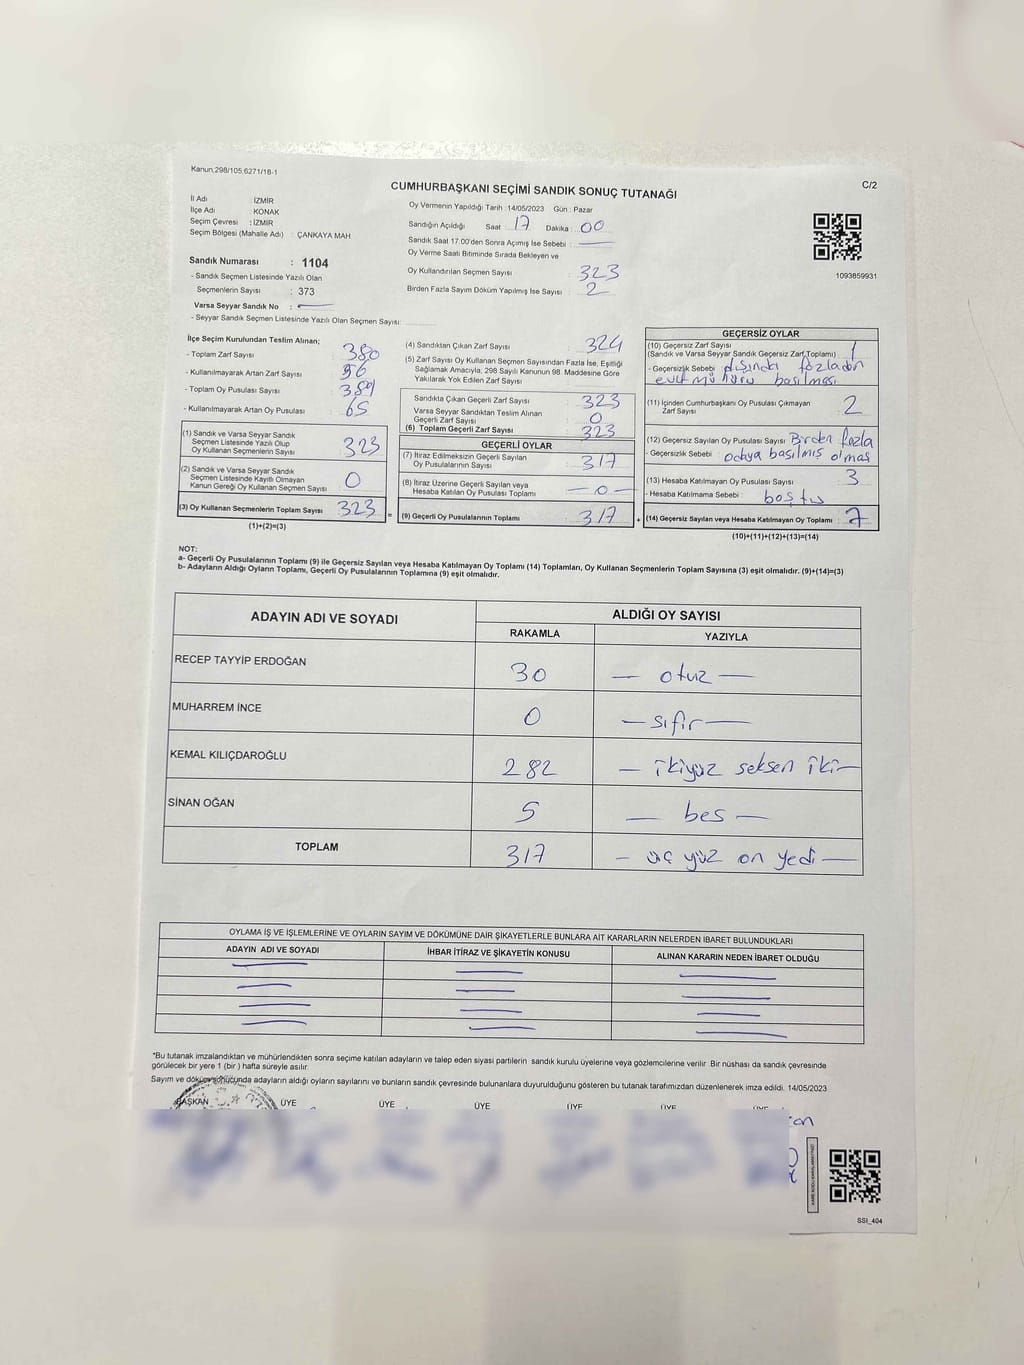 Kanun;298/105,6271/18-1
C/2
CUMHURBAŞKANI SEÇİMİ SANDIK SONUÇ TUTANAĞI
İl Adı : İZMİR
İlçe Adı : KONAK
Seçim Çevresi : İZMİR
Seçim Bölgesi (Mahalle Adı) : ÇANKAYA MAH.
Sandık Numarası : 1104
- Sandık Seçmen Listesinde Yazılı Olan
Seçmenlerin Sayısı : 373
Varsa Seyyar Sandık No :
- Seyyar Sandık Seçmen Listesinde Yazılı Olan Seçmen Sayısı:
Oy Vermenin Yapıldığı Tarih :14/05/2023 Gün : Pazar
Sandığın Açıldığı Saat : 17 Dakika : 00
Sandık Saat 17:00'den Sonra Açımış İse Sebebi :
Oy Verme Saati Bitiminde Sırada Bekleyen ve
Oy Kullandırılan Seçmen Sayısı : 323
Birden Fazla Sayım Döküm Yapılmış İse Sayısı : 2
1093859931
İlçe Seçim Kurulundan Teslim Alınan;
- Toplam Zarf Sayısı : 380
- Kullanılmayarak Artan Zarf Sayısı : 56
- Toplam Oy Pusulası Sayısı : 389
- Kullanılmayarak Artan Oy Pusulası : 65
(1) Sandık ve Varsa Seyyar Sandık
Seçmen Listesinde Yazılı Olup
Oy Kullanan Seçmen Sayısı : 323
(2) Sandık ve Varsa Seyyar Sandık
Seçmen Listesinde Kayıtlı Olmayan
Kanun Gereği Oy Kullanan Seçmen Sayısı : 0
(3) Oy Kullanan Seçmenlerin Toplam Sayısı : 323
(1)+(2)=(3)
(4) Sandıktan Çıkan Zarf Sayısı : 324
(5) Zarf Sayısı Oy Kullanan Seçmen Sayısından Fazla İse, Eşitliği
Sağlamak Amacıyla, 298 Sayılı Kanunun 98. Maddesine Göre
Yakılarak Yok Edilen Zarf Sayısı :
Sandıkta Çıkan Geçerli Zarf Sayısı : 323
Varsa Seyyar Sandıktan Teslim Alınan
Geçerli Zarf Sayısı : 0
(6) Toplam Geçerli Zarf Sayısı : 323
GEÇERLİ OYLAR
(7) İtiraz Edilmeksizin Geçerli Sayılan
Oy Pusulalarının Sayısı : 317
(8) İtiraz Üzerine Geçerli Sayılan veya
Hesaba Katılan Oy Pusulası Toplamı : — 0 —
(9) Geçerli Oy Pusulalarının Toplamı : 317
GEÇERSİZ OYLAR
(10) Geçersiz Zarf Sayısı
(Sandık ve Varsa Seyyar Sandık Geçersiz Zarf Toplamı) : 1
- Geçersizlik Sebebi : dışında fazladan
evet mührü basılması
(11) İçinden Cumhurbaşkanı Oy Pusulası Çıkmayan
Zarf Sayısı : 2
(12) Geçersiz Sayılan Oy Pusulası Sayısı : Birden fazla
- Geçersizlik Sebebi : odaya basılmış olması
(13) Hesaba Katılmayan Oy Pusulası Sayısı : 3
- Hesaba Katılmama Sebebi : boştu
(14) Geçersiz Sayılan veya Hesaba Katılmayan Oy Toplamı : 7
(10)+(11)+(12)+(13)=(14)
NOT:
a- Geçerli Oy Pusulalarının Toplamı (9) ile Geçersiz Sayılan veya Hesaba Katılmayan Oy Toplamı (14) Toplamları, Oy Kullanan Seçmenlerin Toplam Sayısına (3) eşit olmalıdır. (9)+(14)=(3)
b- Adayların Aldığı Oyların Toplamı, Geçerli Oy Pusulalarının Toplamına (9) eşit olmalıdır.
ADAYIN ADI VE SOYADI
ALDIĞI OY SAYISI
RAKAMLA YAZIYLA
RECEP TAYYİP ERDOĞAN 30 — otuz —
MUHARREM İNCE 0 — sıfır —
KEMAL KILIÇDAROĞLU 282 — ikiyüz seksen iki —
SİNAN OĞAN 5 — bes —
TOPLAM 317 — üç yüz on yedi —
OYLAMA İŞ VE İŞLEMLERİNE VE OYLARIN SAYIM VE DÖKÜMÜNE DAİR ŞİKAYETLERLE BUNLARA AİT KARARLARIN NELERDEN İBARET BULUNDUKLARI
ADAYIN ADI VE SOYADI İHBAR İTİRAZ VE ŞİKAYETİN KONUSU ALINAN KARARIN NEDEN İBARET OLDUĞU
*Bu tutanak imzalandıktan ve mühürlendikten sonra seçime katılan adayların ve talep eden siyasi partilerin sandık kurulu üyelerine veya gözlemcilerine verilir. Bir nüshası da sandık çevresinde
görülecek bir yere 1 (bir ) hafta süreyle asılır.
Sayım ve döküm sonucunda adayların aldığı oyların sayılarını ve bunların sandık çevresinde bulunanlara duyurulduğunu gösteren bu tutanak tarafımızdan düzenlenerek imza edildi. 14/05/2023
BAŞKAN ÜYE ÜYE ÜYE ÜYE ÜYE
SSI_404